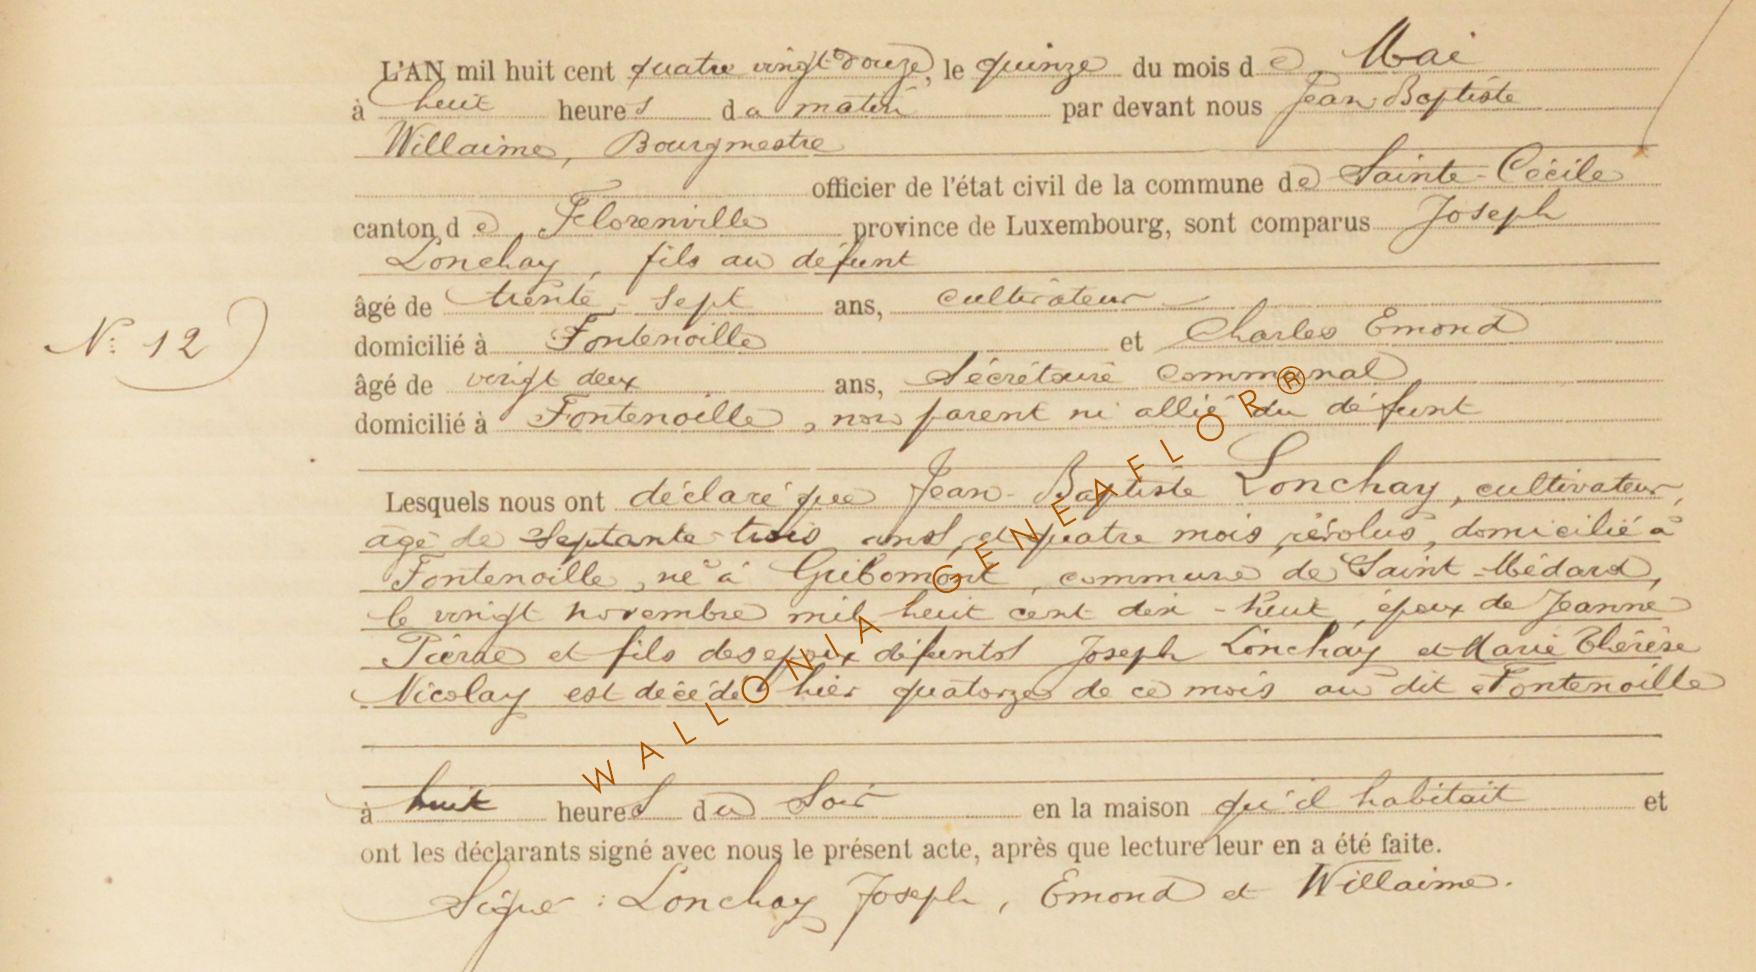 L'AN mil huit cent quatre vingt douze, le quinze du mois de Mai
à huit heures du matin par devant nous Jean Baptiste
Willaime, Bourgmestre
officier de l'état civil de la commune de Sainte-Cécile
canton de Florenville province de Luxembourg, sont comparus Joseph
Lonchay, fils au défunt
âgé de trente-sept ans, cultivateur
N.° 12
domicilié à Fontenoille et Charles Emond
âgé de vingt deux ans, Sécrétaire communal
domicilié à Fontenoille, non parent ni allié du défunt
Lesquels nous ont déclaré que Jean-Baptiste Lonchay, cultivateur,
âgé de Septante-trois ans, et quatre mois révolus, domicilié à
Fontenoille, né à Gribomont, commune de Saint-Médard,
le vingt novembre mil huit cent dix-huit, époux de Jeanne
et fils des époux défunts Joseph Lonchay et Marie Thérèse
Nicolay est décédé hier quatorze de ce mois au dit Fontenoille
à huit heures du Soir en la maison qu'il habitait et
ont les déclarants signé avec nous le présent acte, après que lecture leur en a été faite.
Signé : Lonchay Joseph, Emond et Willaime.
WALLONIA GENEAFLOR®